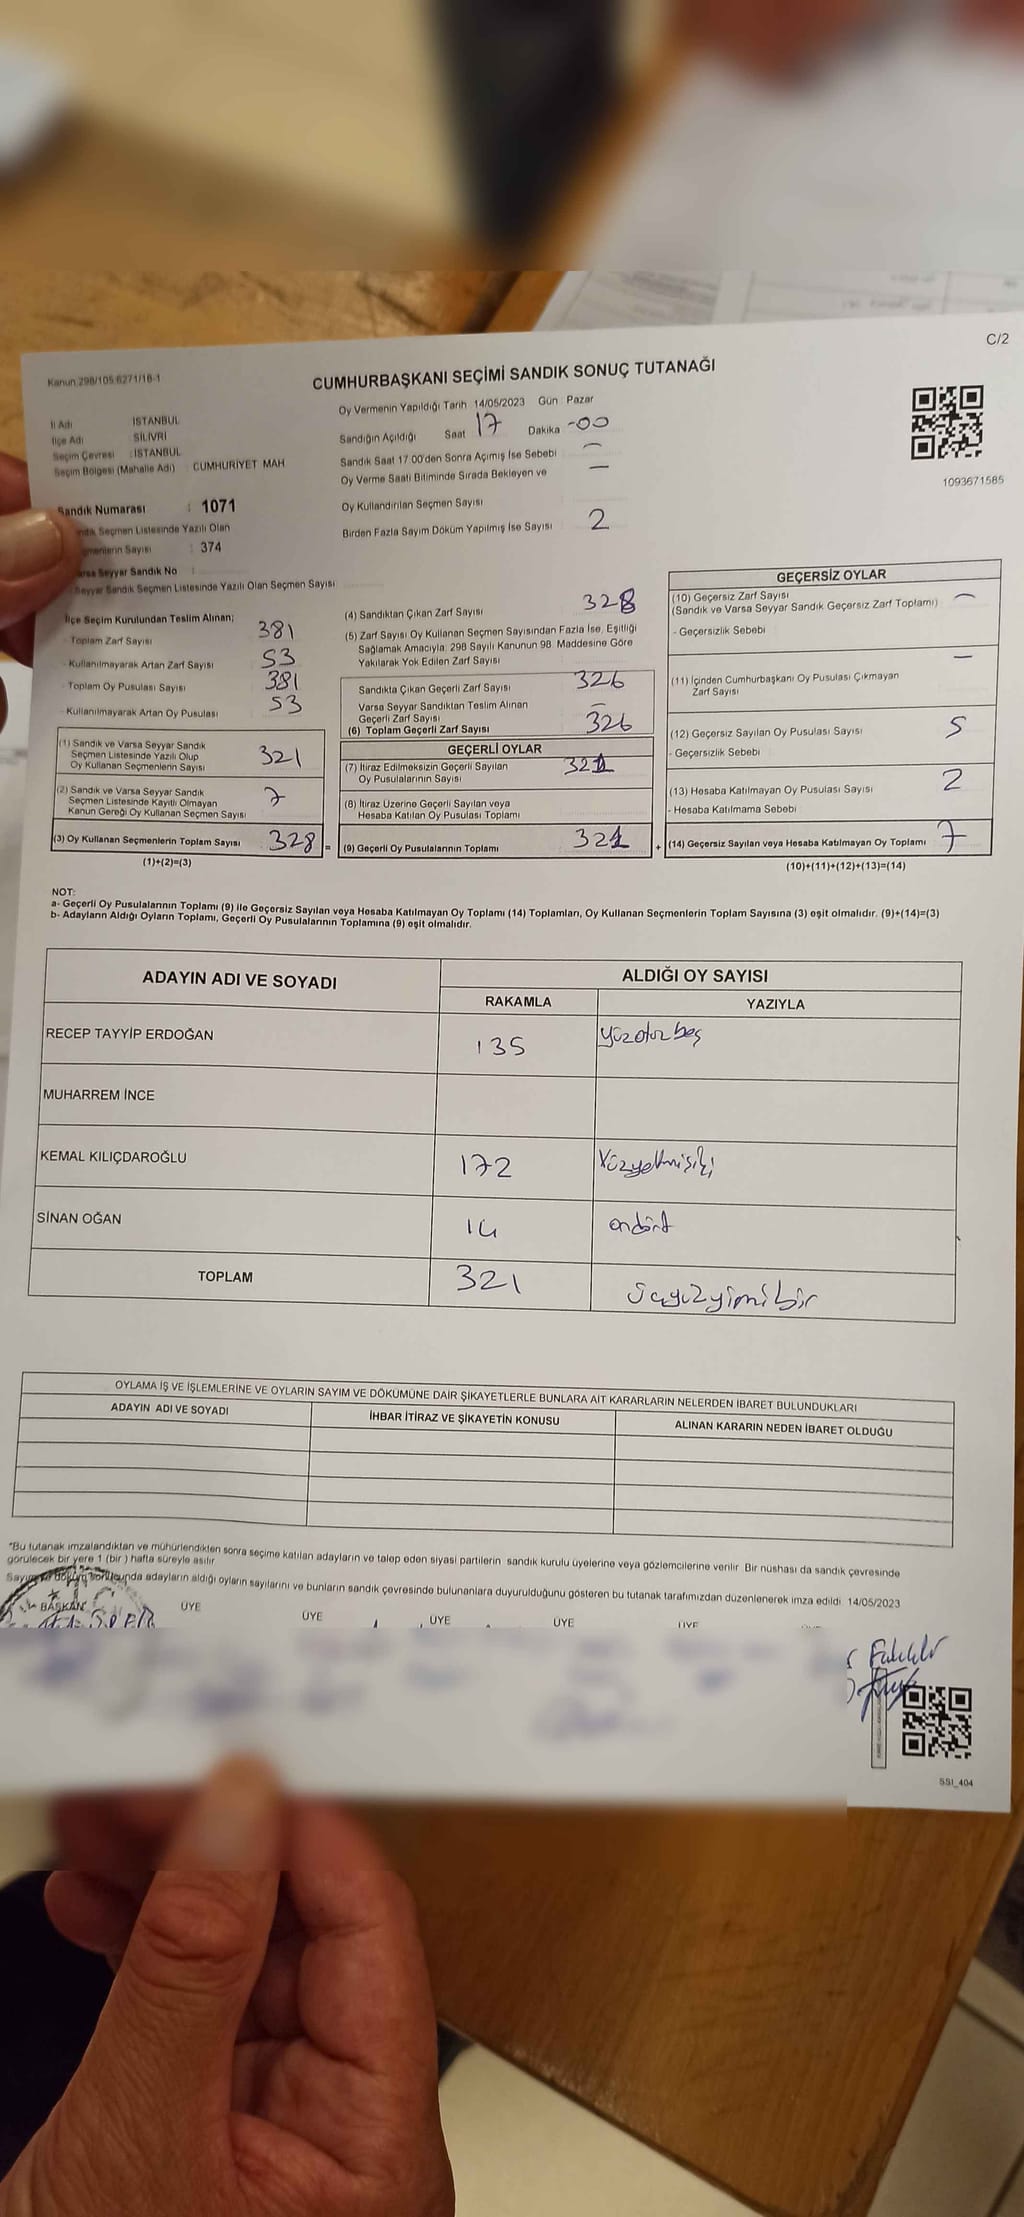 C/2
Kanun:298/105 6271/18-1
CUMHURBAŞKANI SEÇİMİ SANDIK SONUÇ TUTANAĞI
1093671585
İl Adı : İSTANBUL
İlçe Adı : SİLİVRİ
Seçim Çevresi : İSTANBUL
Seçim Bölgesi (Mahalle Adi) : CUMHURİYET MAH
Sandık Numarası : 1071
Seçmen Listesinde Yazılı Olan
Sayısı : 374
Seyyar Sandık No :
Seyyar Sandık Seçmen Listesinde Yazılı Olan Seçmen Sayısı :
Oy Vermenin Yapıldığı Tarih 14/05/2023 Gün : Pazar
Sandığın Açıldığı Saat 17 Dakika -00
Sandık Saat 17:00'den Sonra Açımış İse Sebebi —
Oy Verme Saati Bitiminde Sırada Bekleyen ve —
Oy Kullandırılan Seçmen Sayısı
Birden Fazla Sayım Döküm Yapılmış İse Sayısı 2
İlçe Seçim Kurulundan Teslim Alınan;
- Toplam Zarf Sayısı 381
- Kullanılmayarak Artan Zarf Sayısı 53
- Toplam Oy Pusulası Sayısı 381
- Kullanılmayarak Artan Oy Pusulası 53
(1) Sandık ve Varsa Seyyar Sandık
Seçmen Listesinde Yazılı Olup
Oy Kullanan Seçmenlerin Sayısı 321
(2) Sandık ve Varsa Seyyar Sandık
Seçmen Listesinde Kayıtlı Olmayan
Kanun Gereği Oy Kullanan Seçmen Sayısı 7
(3) Oy Kullanan Seçmenlerin Toplam Sayısı 328 =
(1)+(2)=(3)
(4) Sandıktan Çıkan Zarf Sayısı 328
(5) Zarf Sayısı Oy Kullanan Seçmen Sayısından Fazla İse, Eşitliği
Sağlamak Amacıyla, 298 Sayılı Kanunun 98. Maddesine Göre
Yakılarak Yok Edilen Zarf Sayısı
Sandıkta Çıkan Geçerli Zarf Sayısı 326
Varsa Seyyar Sandıktan Teslim Alınan
Geçerli Zarf Sayısı —
(6) Toplam Geçerli Zarf Sayısı 326
GEÇERLİ OYLAR
(7) İtiraz Edilmeksizin Geçerli Sayılan
Oy Pusulalarının Sayısı 321
(8) İtiraz Üzerine Geçerli Sayılan veya
Hesaba Katılan Oy Pusulası Toplamı
(9) Geçerli Oy Pusulalarının Toplamı 321 +
GEÇERSİZ OYLAR
(10) Geçersiz Zarf Sayısı —
(Sandık ve Varsa Seyyar Sandık Geçersiz Zarf Toplamı)
- Geçersizlik Sebebi
(11) İçinden Cumhurbaşkanı Oy Pusulası Çıkmayan —
Zarf Sayısı
(12) Geçersiz Sayılan Oy Pusulası Sayısı 5
- Geçersizlik Sebebi
(13) Hesaba Katılmayan Oy Pusulası Sayısı 2
- Hesaba Katılmama Sebebi
(14) Geçersiz Sayılan veya Hesaba Katılmayan Oy Toplamı 7
(10)+(11)+(12)+(13)=(14)
NOT:
a- Geçerli Oy Pusulalarının Toplamı (9) ile Geçersiz Sayılan veya Hesaba Katılmayan Oy Toplamı (14) Toplamları, Oy Kullanan Seçmenlerin Toplam Sayısına (3) eşit olmalıdır. (9)+(14)=(3)
b- Adayların Aldığı Oyların Toplamı, Geçerli Oy Pusulalarının Toplamına (9) eşit olmalıdır.
ADAYIN ADI VE SOYADI ALDIĞI OY SAYISI
RAKAMLA YAZIYLA
RECEP TAYYİP ERDOĞAN 135 yüzotuzbeş
MUHARREM İNCE
KEMAL KILIÇDAROĞLU 172 Yüzyetmişiki
SİNAN OĞAN 14 ondört
TOPLAM 321 üçyüzyirmibir
OYLAMA İŞ VE İŞLEMLERİNE VE OYLARIN SAYIM VE DÖKÜMÜNE DAİR ŞİKAYETLERLE BUNLARA AİT KARARLARIN NELERDEN İBARET BULUNDUKLARI
ADAYIN ADI VE SOYADI İHBAR İTİRAZ VE ŞİKAYETİN KONUSU ALINAN KARARIN NEDEN İBARET OLDUĞU
*Bu tutanak imzalandıktan ve mühürlendikten sonra seçime katılan adayların ve talep eden siyasi partilerin sandık kurulu üyelerine veya gözlemcilerine verilir. Bir nüshası da sandık çevresinde
görülecek bir yere 1 (bir) hafta süreyle asılır.
Sayım ve döküm sonucunda adayların aldığı oyların sayılarını ve bunların sandık çevresinde bulunanlara duyurulduğunu gösteren bu tutanak tarafımızdan düzenlenerek imza edildi. 14/05/2023
BAŞKAN ÜYE ÜYE ÜYE ÜYE ÜYE
SSI_404